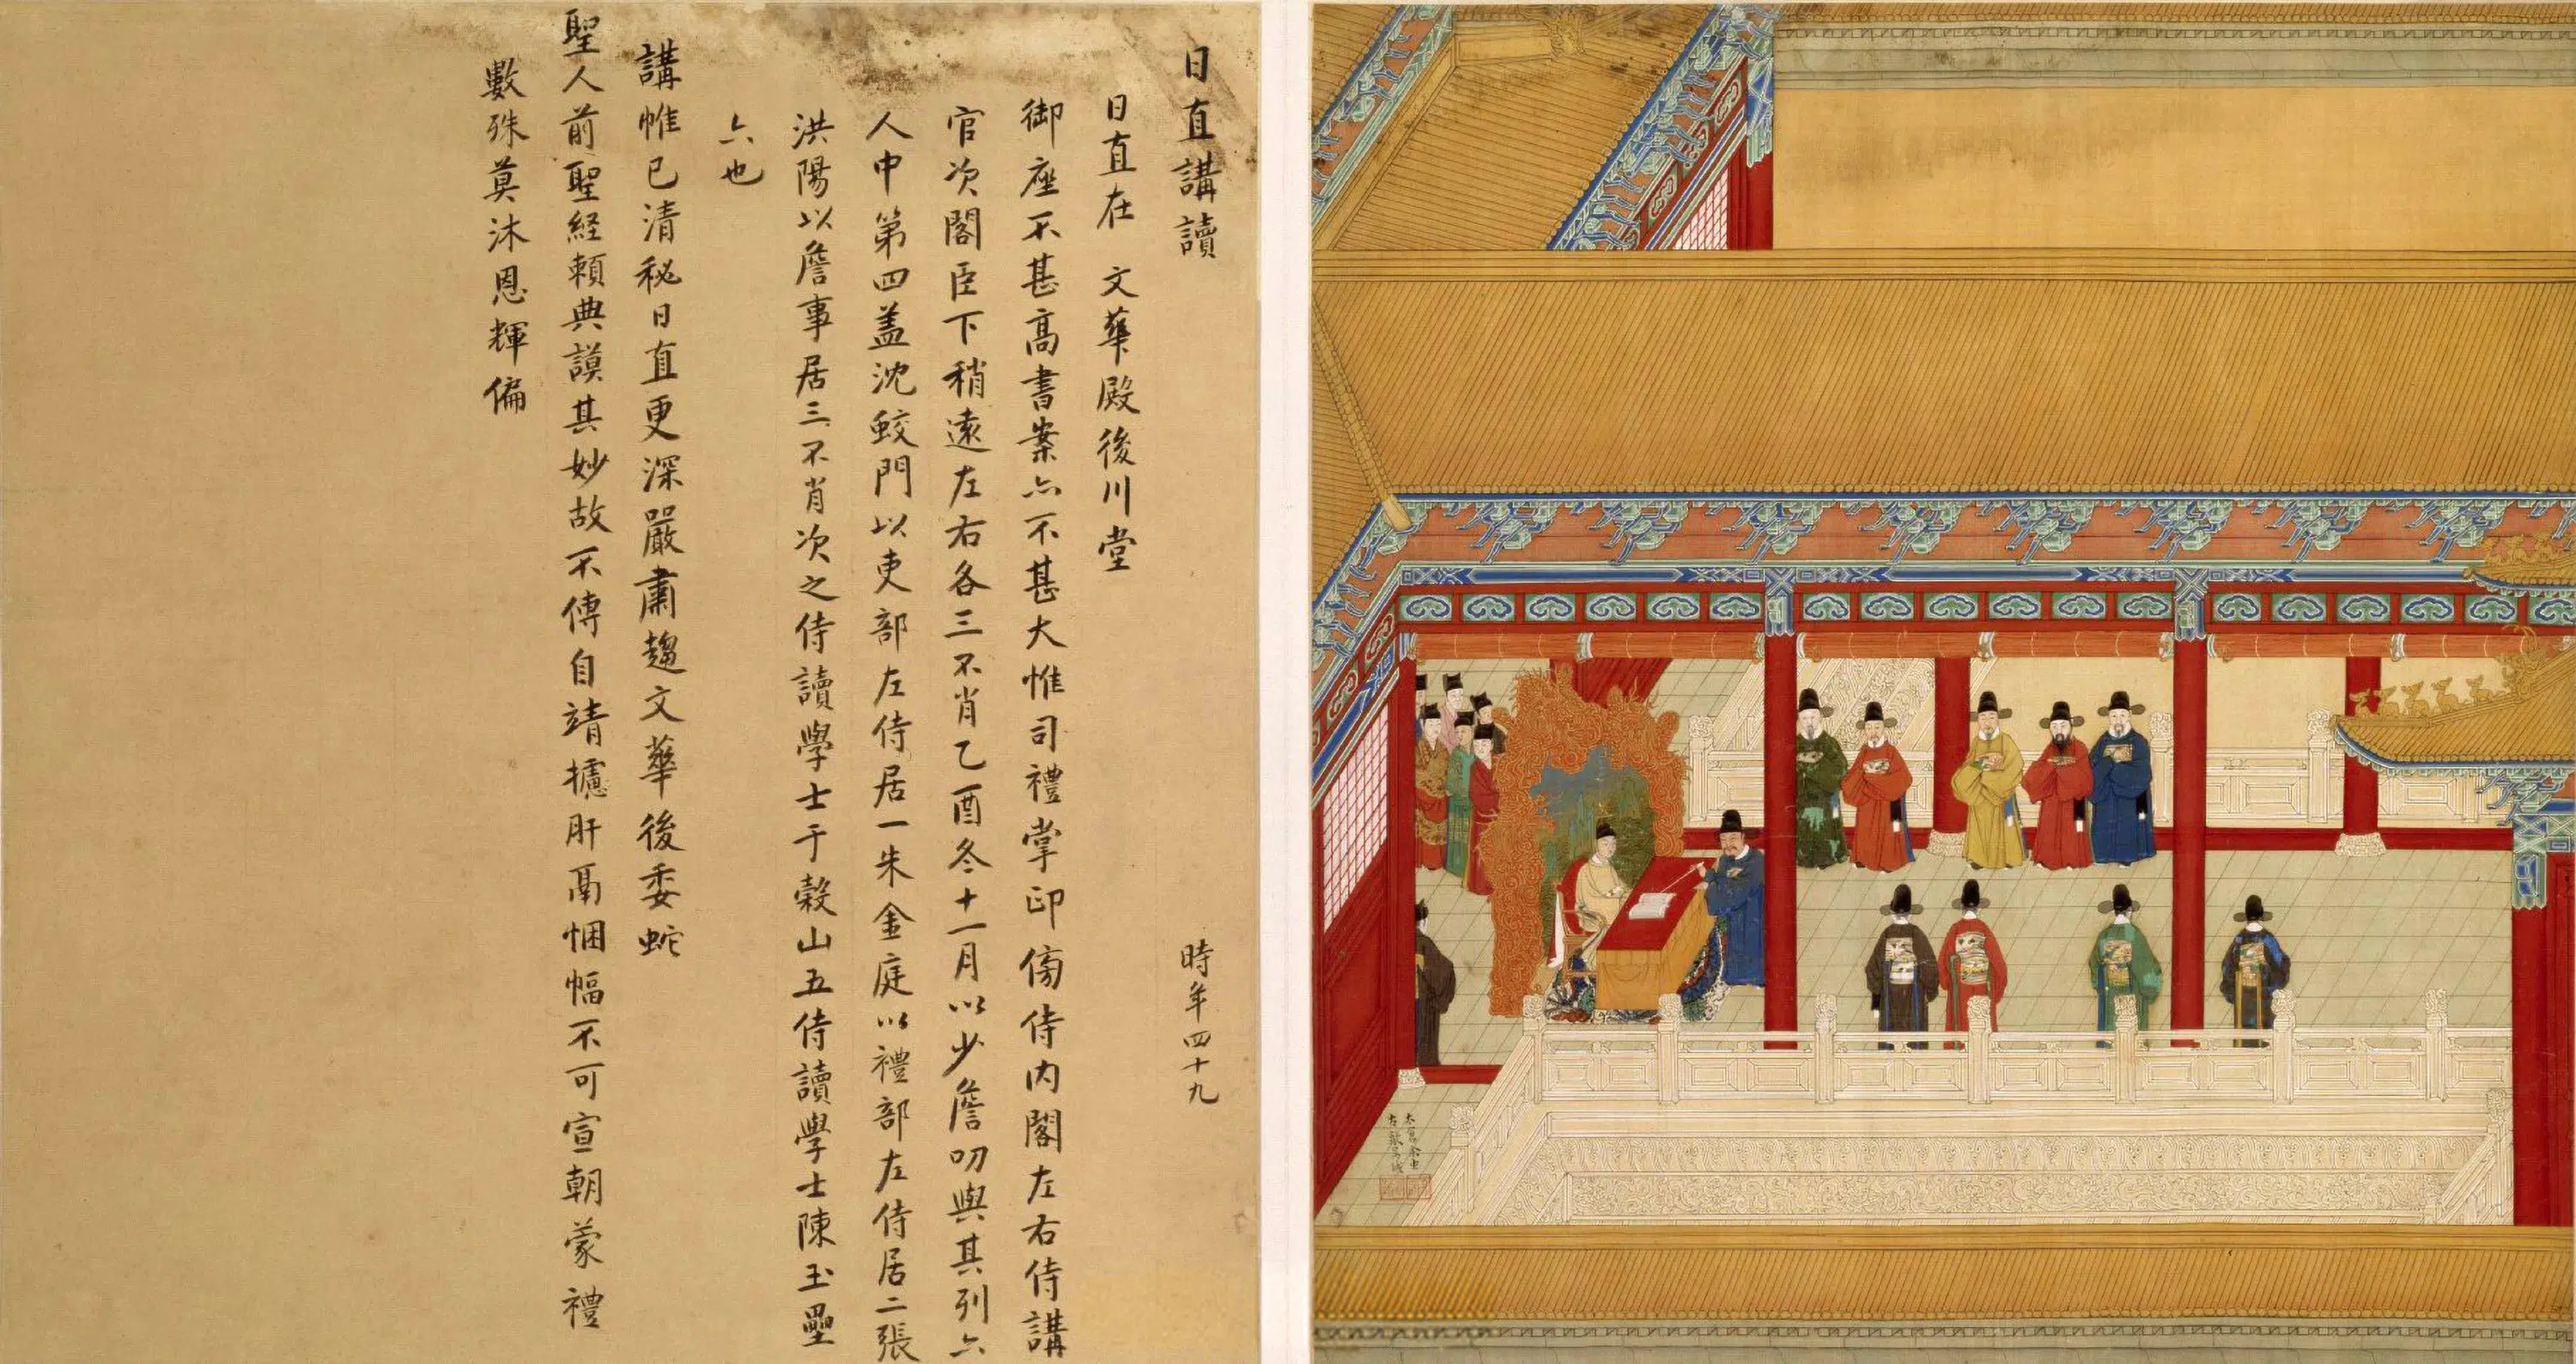 日直講讀 時年四十九
日直在 文華殿後川堂
御座不甚高書案亦不甚大惟司禮掌印傍侍内閣左右侍講
官次閣臣下稍遠左右各三不肖乙酉冬十一月以少詹叨與其列六
人中第四盖沈蛟門以吏部左侍居一朱金庭以禮部左侍居二張
洪陽以詹事居三不肖次之侍讀學士于榖山五侍讀學士陳玉壘
六也
講帷已清秘日直更深嚴肅趨文華後委蛇
聖人前聖経頼典謨其妙故不傳自靖攄肝鬲悃愊不可宣朝蒙禮
數殊莫沐恩輝偏